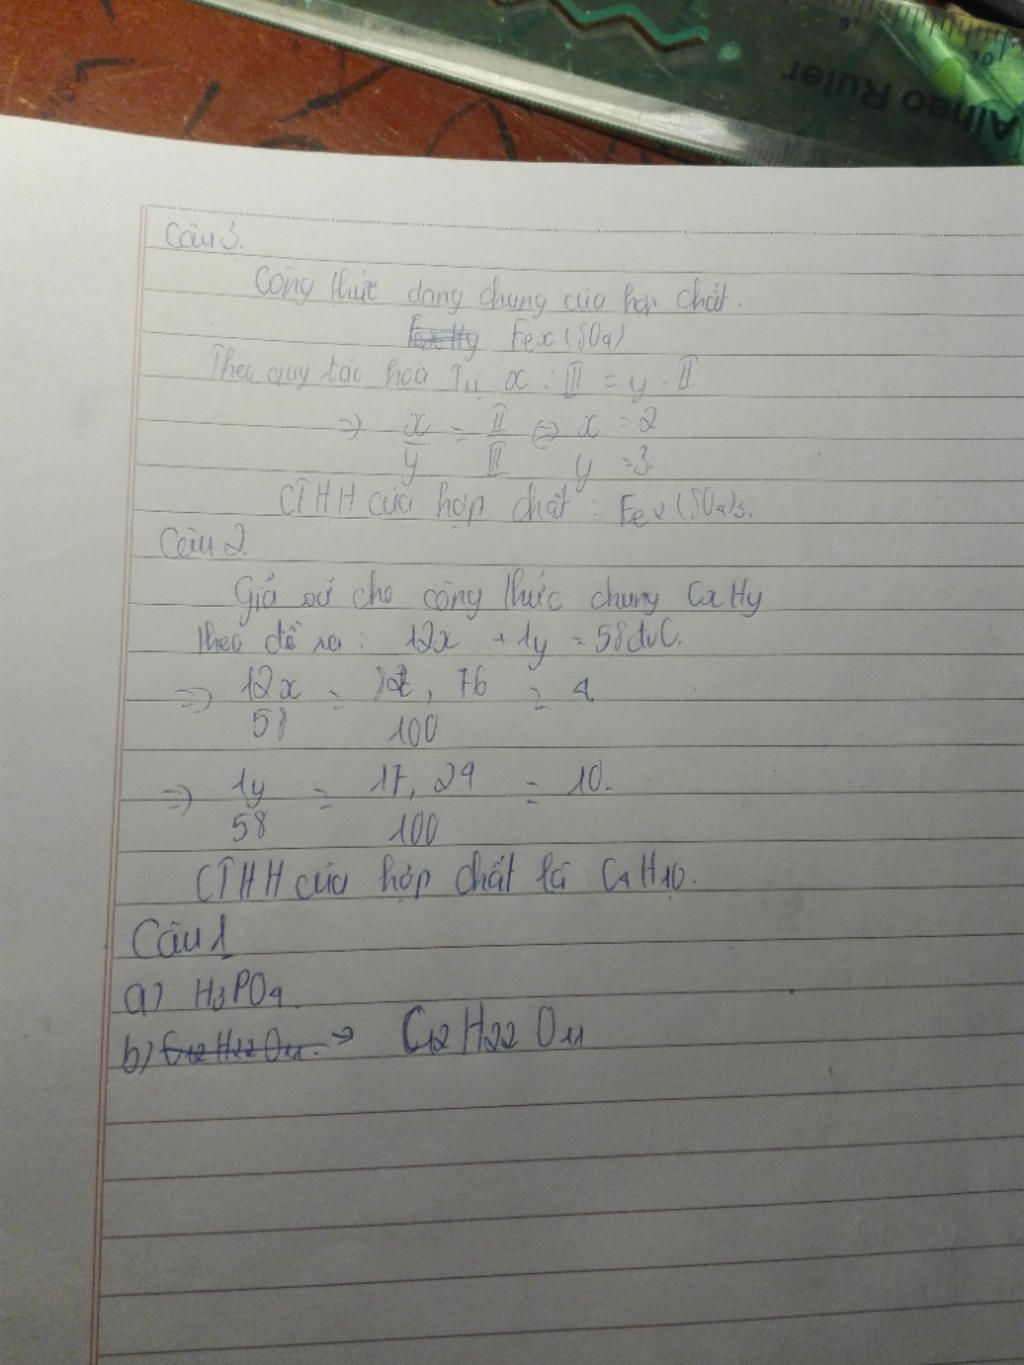 Aihao Ruler
Câu 3.
Công thức dạng chung của hợp chất.
Fex(SO4)
Theo quy tắc hoá Trị x . III = y . II
=> x/y = II/III => x = 2
y = 3
CTHH của hợp chất : Fe2(SO4)3.
Câu 2.
Giả sử cho công thức chung CxHy
theo đề ra: 12x + 1y = 58đvC.
=> 12x/58 = 82,76/100 = 4
=> 1y/58 = 17,24/100 = 10.
CTHH của hợp chất là C4H10.
Câu 1
a) H3PO4.
b) C12H22O11. -> C12H22O11